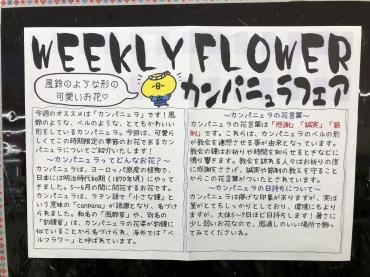 WEEKLY FLOWER
風鈴のような形の
可愛いお花♡
カンパニュラフェア
今週のオススメは「カンパニュラ」です！風
鈴のような、ベルのような、とてもかわいい
形をしているカンパニュラ。今回は、可愛ら
しくてこの時期限定の季節のお花であるカン
パニュラについてご紹介いたします！
～カンパニュラってどんなお花？～
カンパニュラは、ヨーロッパ原産の植物で、
日本には明治時代初期(1870年頃)にやっ
てきました。5～6月の間に開花するお花です。
カンパニュラは、ラテン語で「小さな鐘」と
いう意味の「canpana」が語源となり、名づけ
られました。和名の「風鈴草」や、別名の
「釣鐘草」は、カンパニュラの花姿が釣鐘に
似ていることから名づけられ、海外では「ベ
ルフラワー」と呼ばれています。
～カンパニュラの花言葉～
カンパニュラの花言葉は「感謝」「誠実」「節
制」です。これらは、カンパニュラのベルの形
が教会を連想させる事が由来となっています。
教会の鐘はお祈りや時間を知らせるときなどに
鳴り響きます。教会を訪れる人々はお祈りの度
に感謝をささげ、誠実や節制の教えを守ること
からこの花言葉がついたとされています。
～カンパニュラの日持ちについて～
カンパニュラは儚げな印象がありますが、実は
茎がとてもしっかりとしており、環境にもより
ますが、大体5～7日ほど日持ちします！暑さに
少し弱いお花なので、風通しのいい場所で飾っ
てみてくださいね。